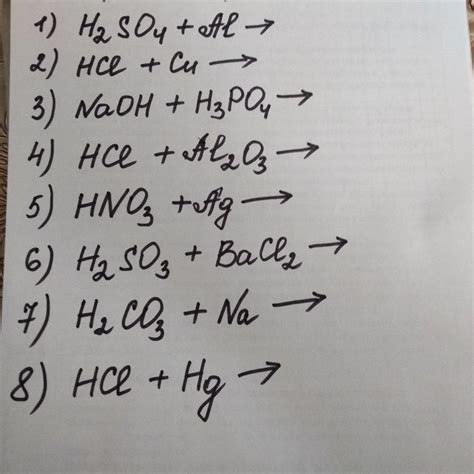 1) H₂SO₄ + Al →
2) HCl + Cu →
3) NaOH + H₃PO₄ →
4) HCl + Al₂O₃ →
5) HNO₃ + Ag →
6) H₂SO₃ + BaCl₂ →
7) H₂CO₃ + Na →
8) HCl + Hg →